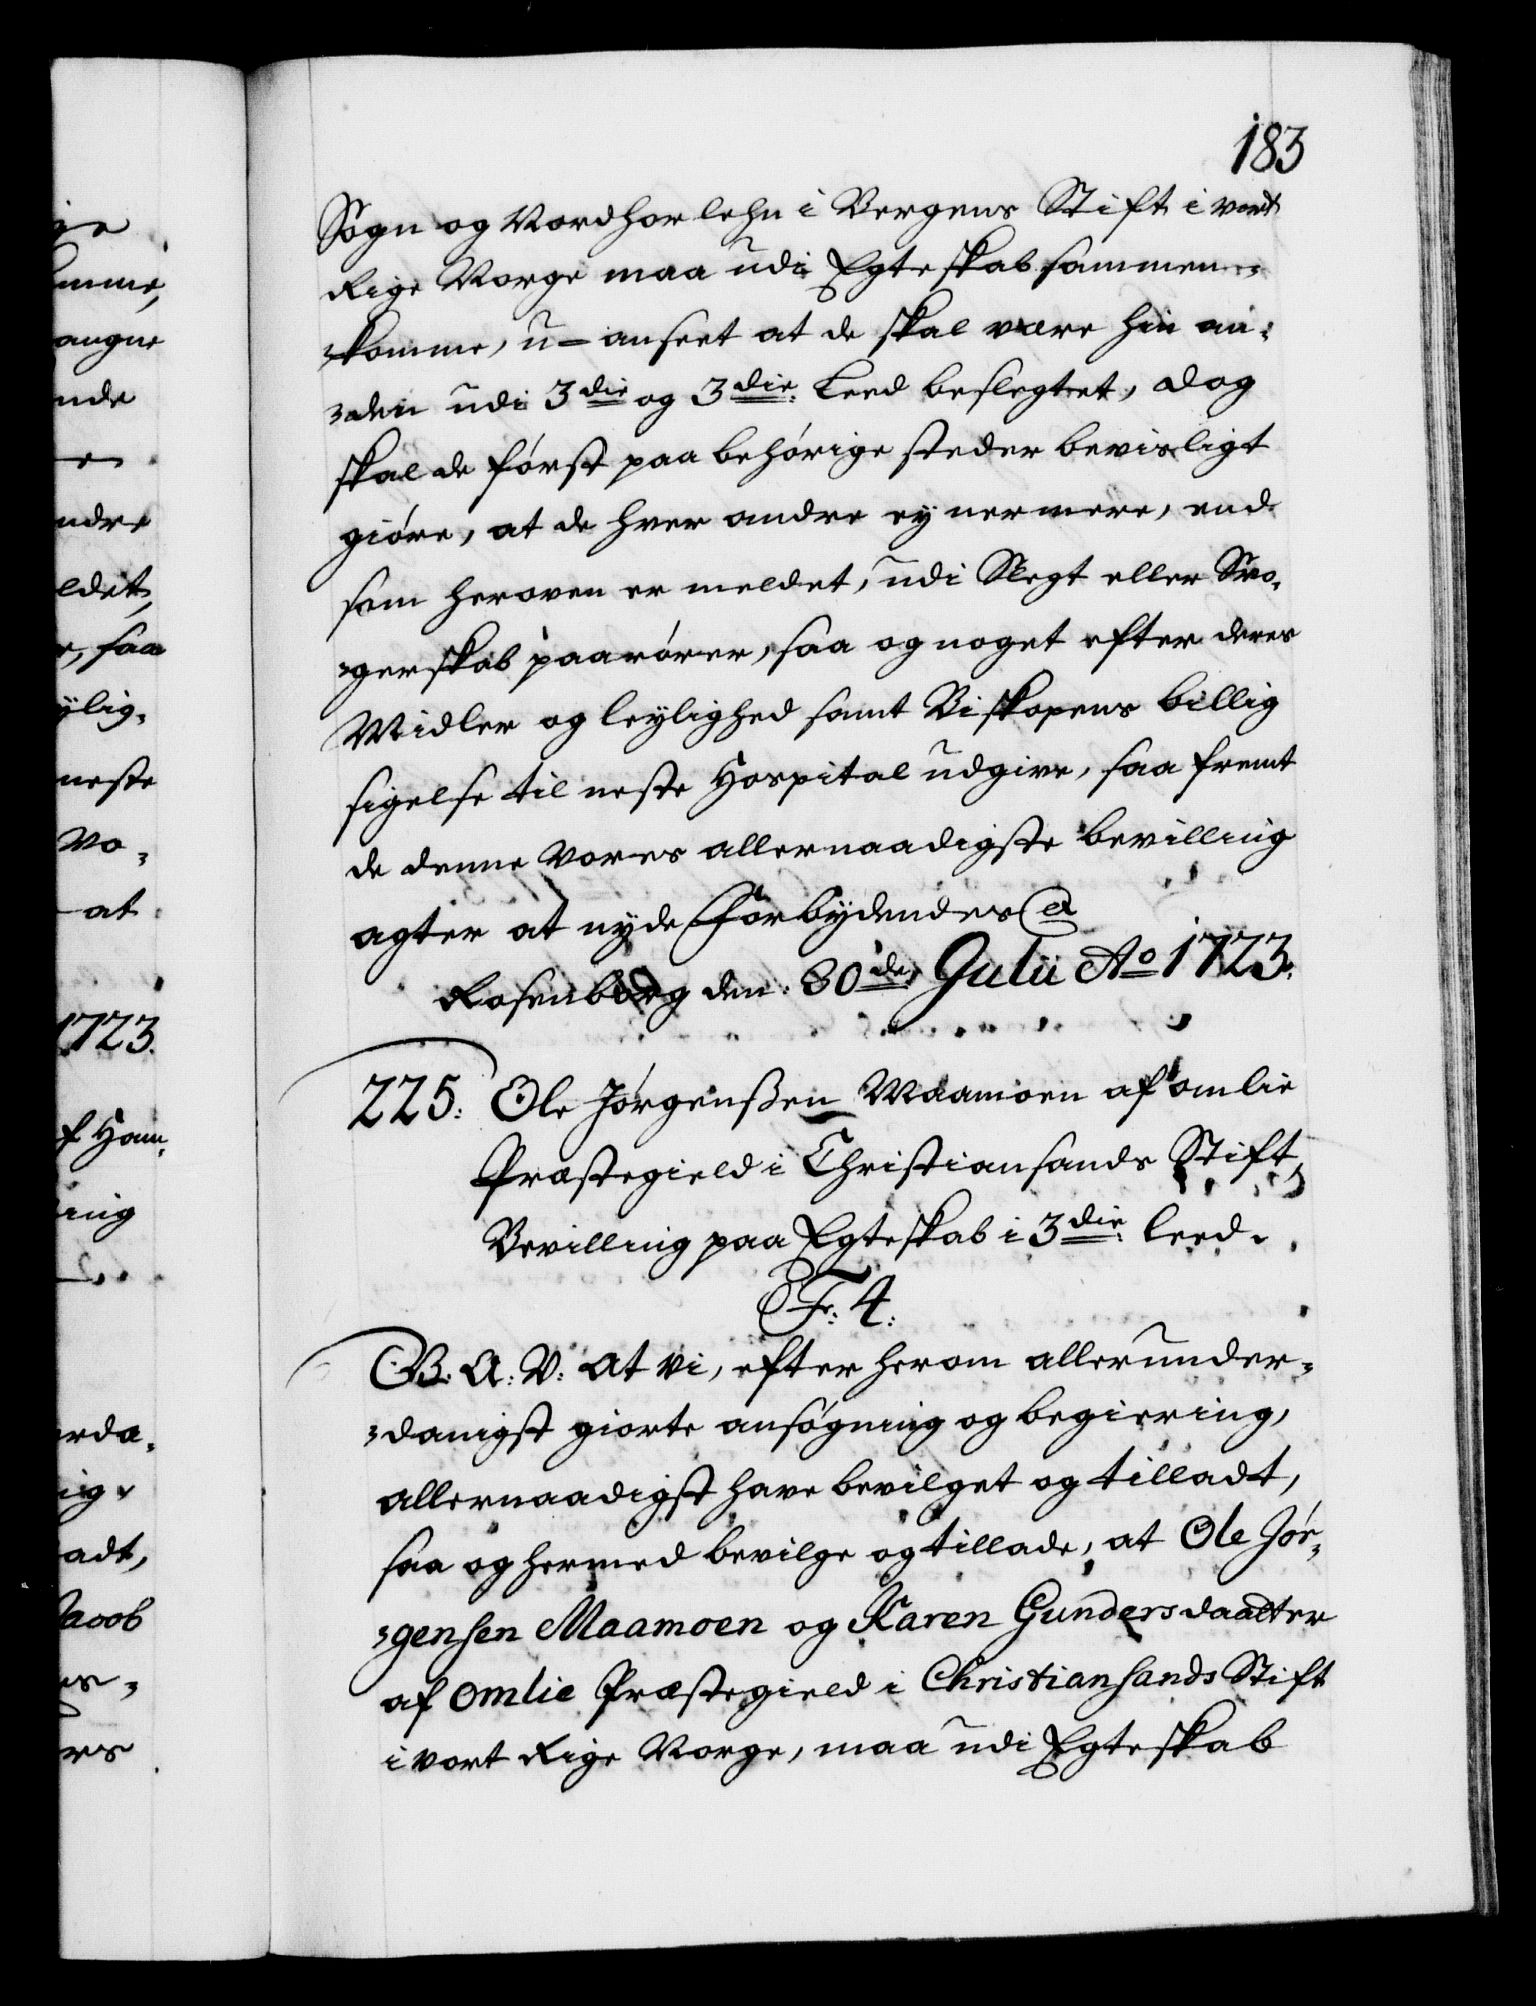 183
Sogn og Nordhorlehn i Bergens Stift i vort
Rige Norge maa udi Egteskab sammen-
-komme, u-anseet at de skal være hin an-
-den udi 3die og 3die Leed beslegtet, dog
skal de först paa behörige steder bevisligt
giöre, at de hver andre ey nermere, end
som heroven er meldet, udi Slegt eller Svo-
-gerskab paarörer, saa og noget efter deres
Midler og leylighed samt Biskopens billig
sigelse til neste Hospital udgive, saa fremt
de denne vores allernaadigste bevilling
agter at nyde Forbydendes &
Rosenborg den: 30de Julii Ao 1723.
225. Ole Jörgenßen Maamoen af omlie
Præstegield i Christiansands Stift,
Bevilling paa Egteskab i 3die Leed.
Fr: 4.
G. B. A: V: at vi, efter herom allerunder-
-danigst giorte ansögning og begiering,
allernaadigst have bevilget og tilladt,
saa og hermed bevilge og tillade, at Ole Jör-
-gensen Maamoen og Karen Gundersdaatter
af omlie Præstegield i Christiansands Stift
i vort Rige Norge, maa udi Egteskab
ige
omme,
angne
nde
ndre
eldet,
r, saa
ylig-
neste
vo-
at
1723.
f Ham-
ing
rda-
ig
adt,
Jacob
es-
ers